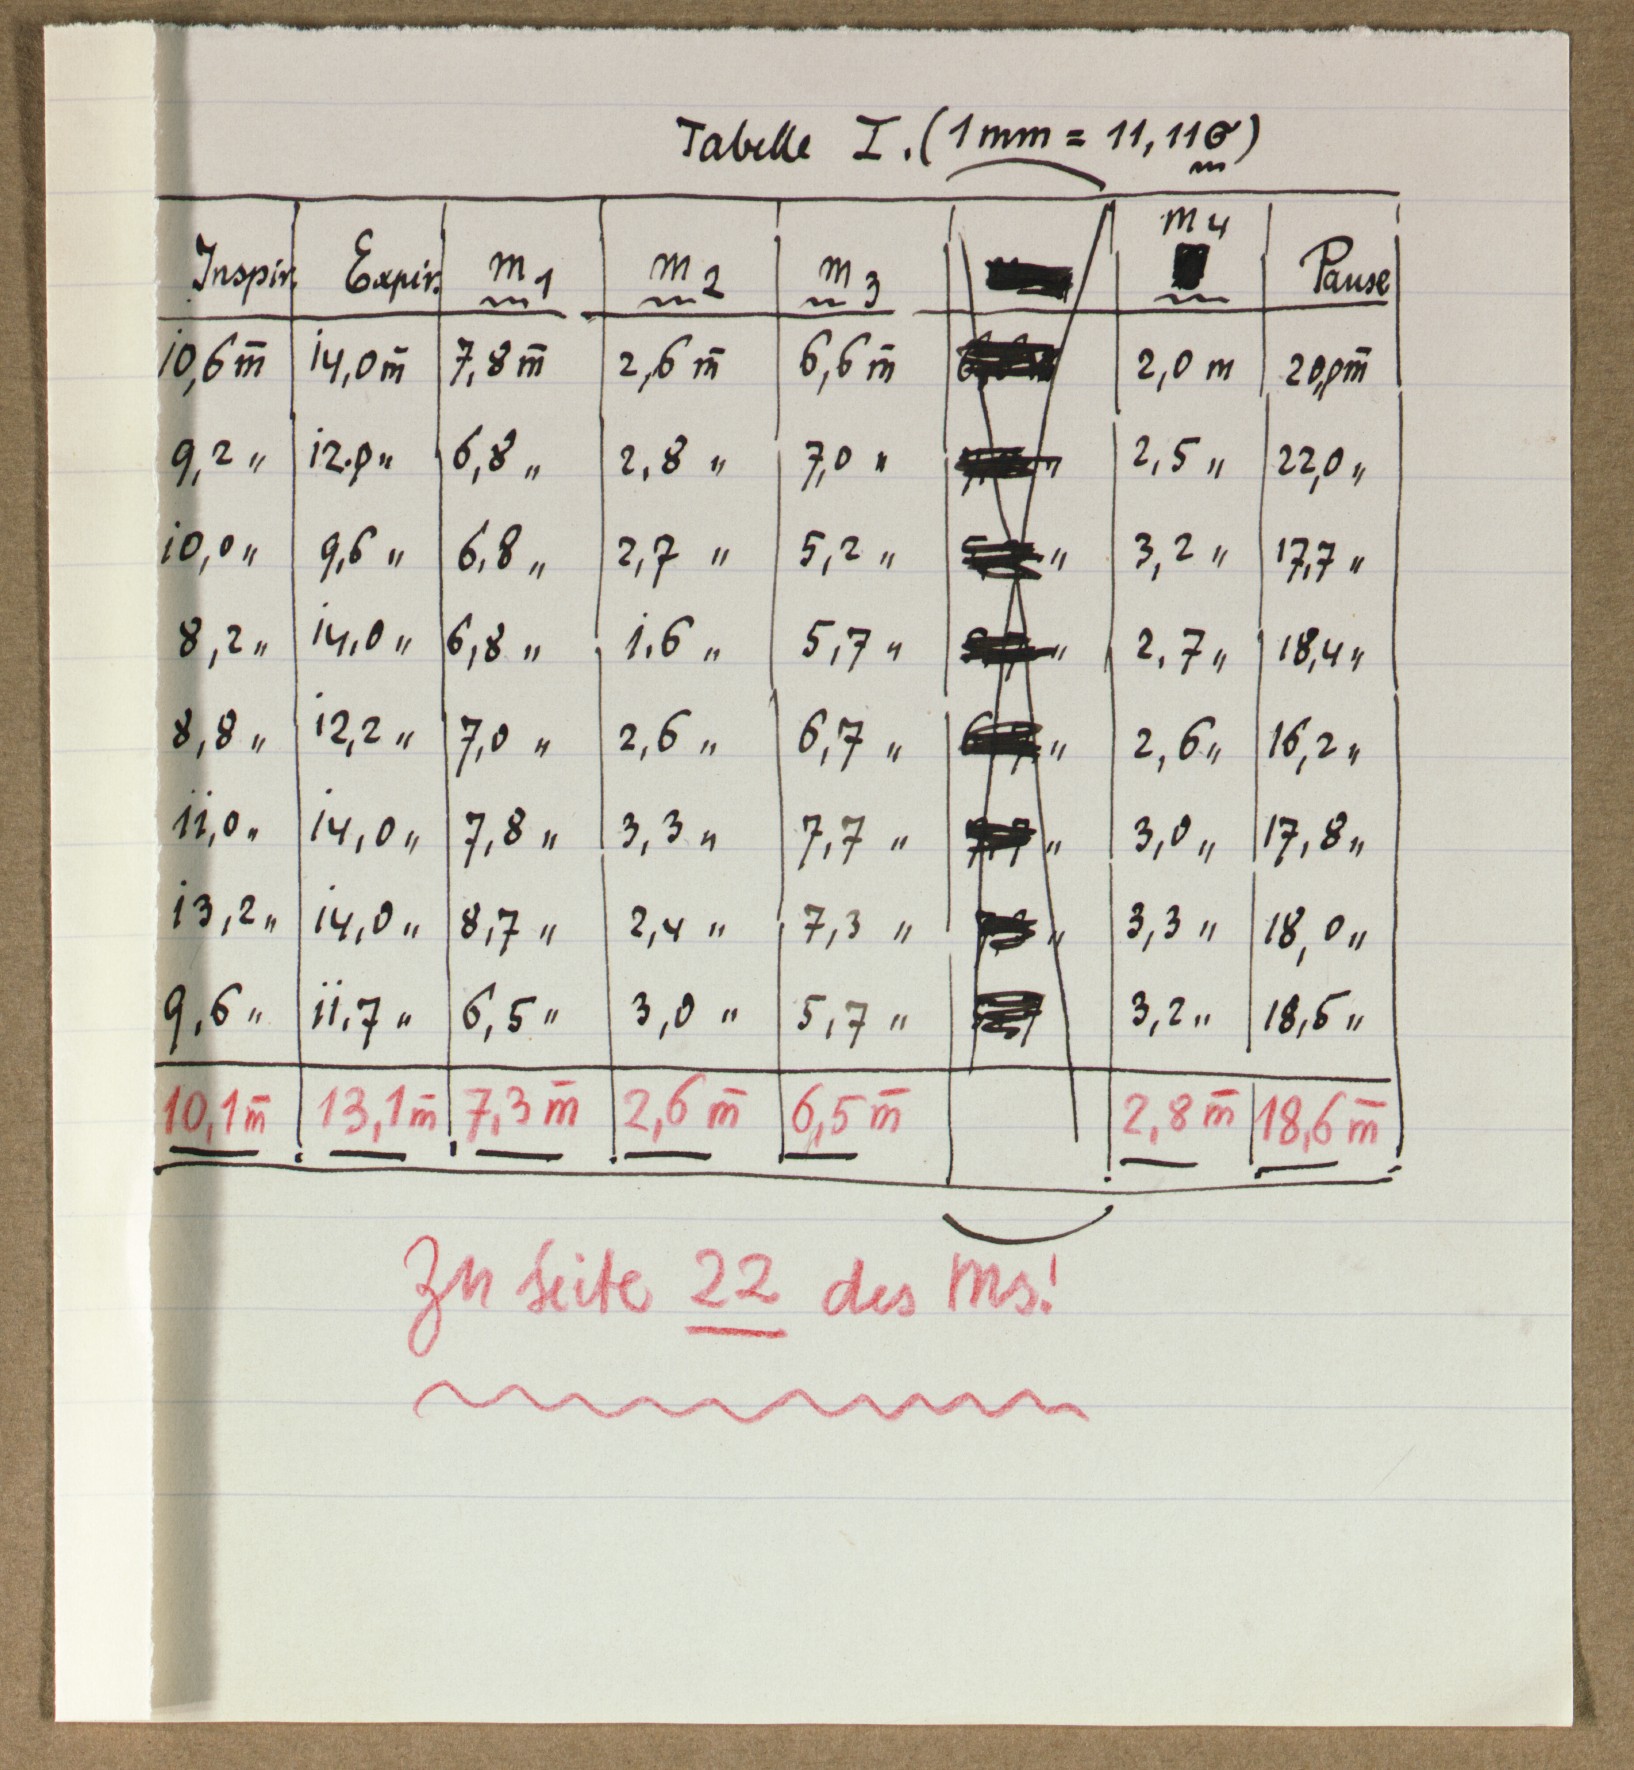 Tabelle I. (1mm = 11,11σ)
Inspir. Expir. m1 m2 m3 m4 Pause
10,6 m̄ 14,0 m̄ 7,8 m̄ 2,6 m̄ 6,6 m̄ 2,0 m 20,0 m̄
9,2 „ 12,0 „ 6,8 „ 2,8 „ 7,0 „ „ 2,5 „ 22,0 „
10,0 „ 9,6 „ 6,8 „ 2,7 „ 5,2 „ „ 3,2 „ 17,7 „
8,2 „ 14,0 „ 6,8 „ 1,6 „ 5,7 „ „ 2,7 „ 18,4 „
8,8 „ 12,2 „ 7,0 „ 2,6 „ 6,7 „ „ 2,6 „ 16,2 „
11,0 „ 14,0 „ 7,8 „ 3,3 „ 7,7 „ „ 3,0 „ 17,8 „
13,2 „ 14,0 „ 8,7 „ 2,4 „ 7,3 „ „ 3,3 „ 18,0 „
9,6 „ 11,7 „ 6,5 „ 3,0 „ 5,7 „ 3,2 „ 18,5 „
10,1 m̄ 13,1 m̄ 7,3 m̄ 2,6 m̄ 6,5 m̄ 2,8 m̄ 18,6 m̄
Zu Seite 22 des Ms!